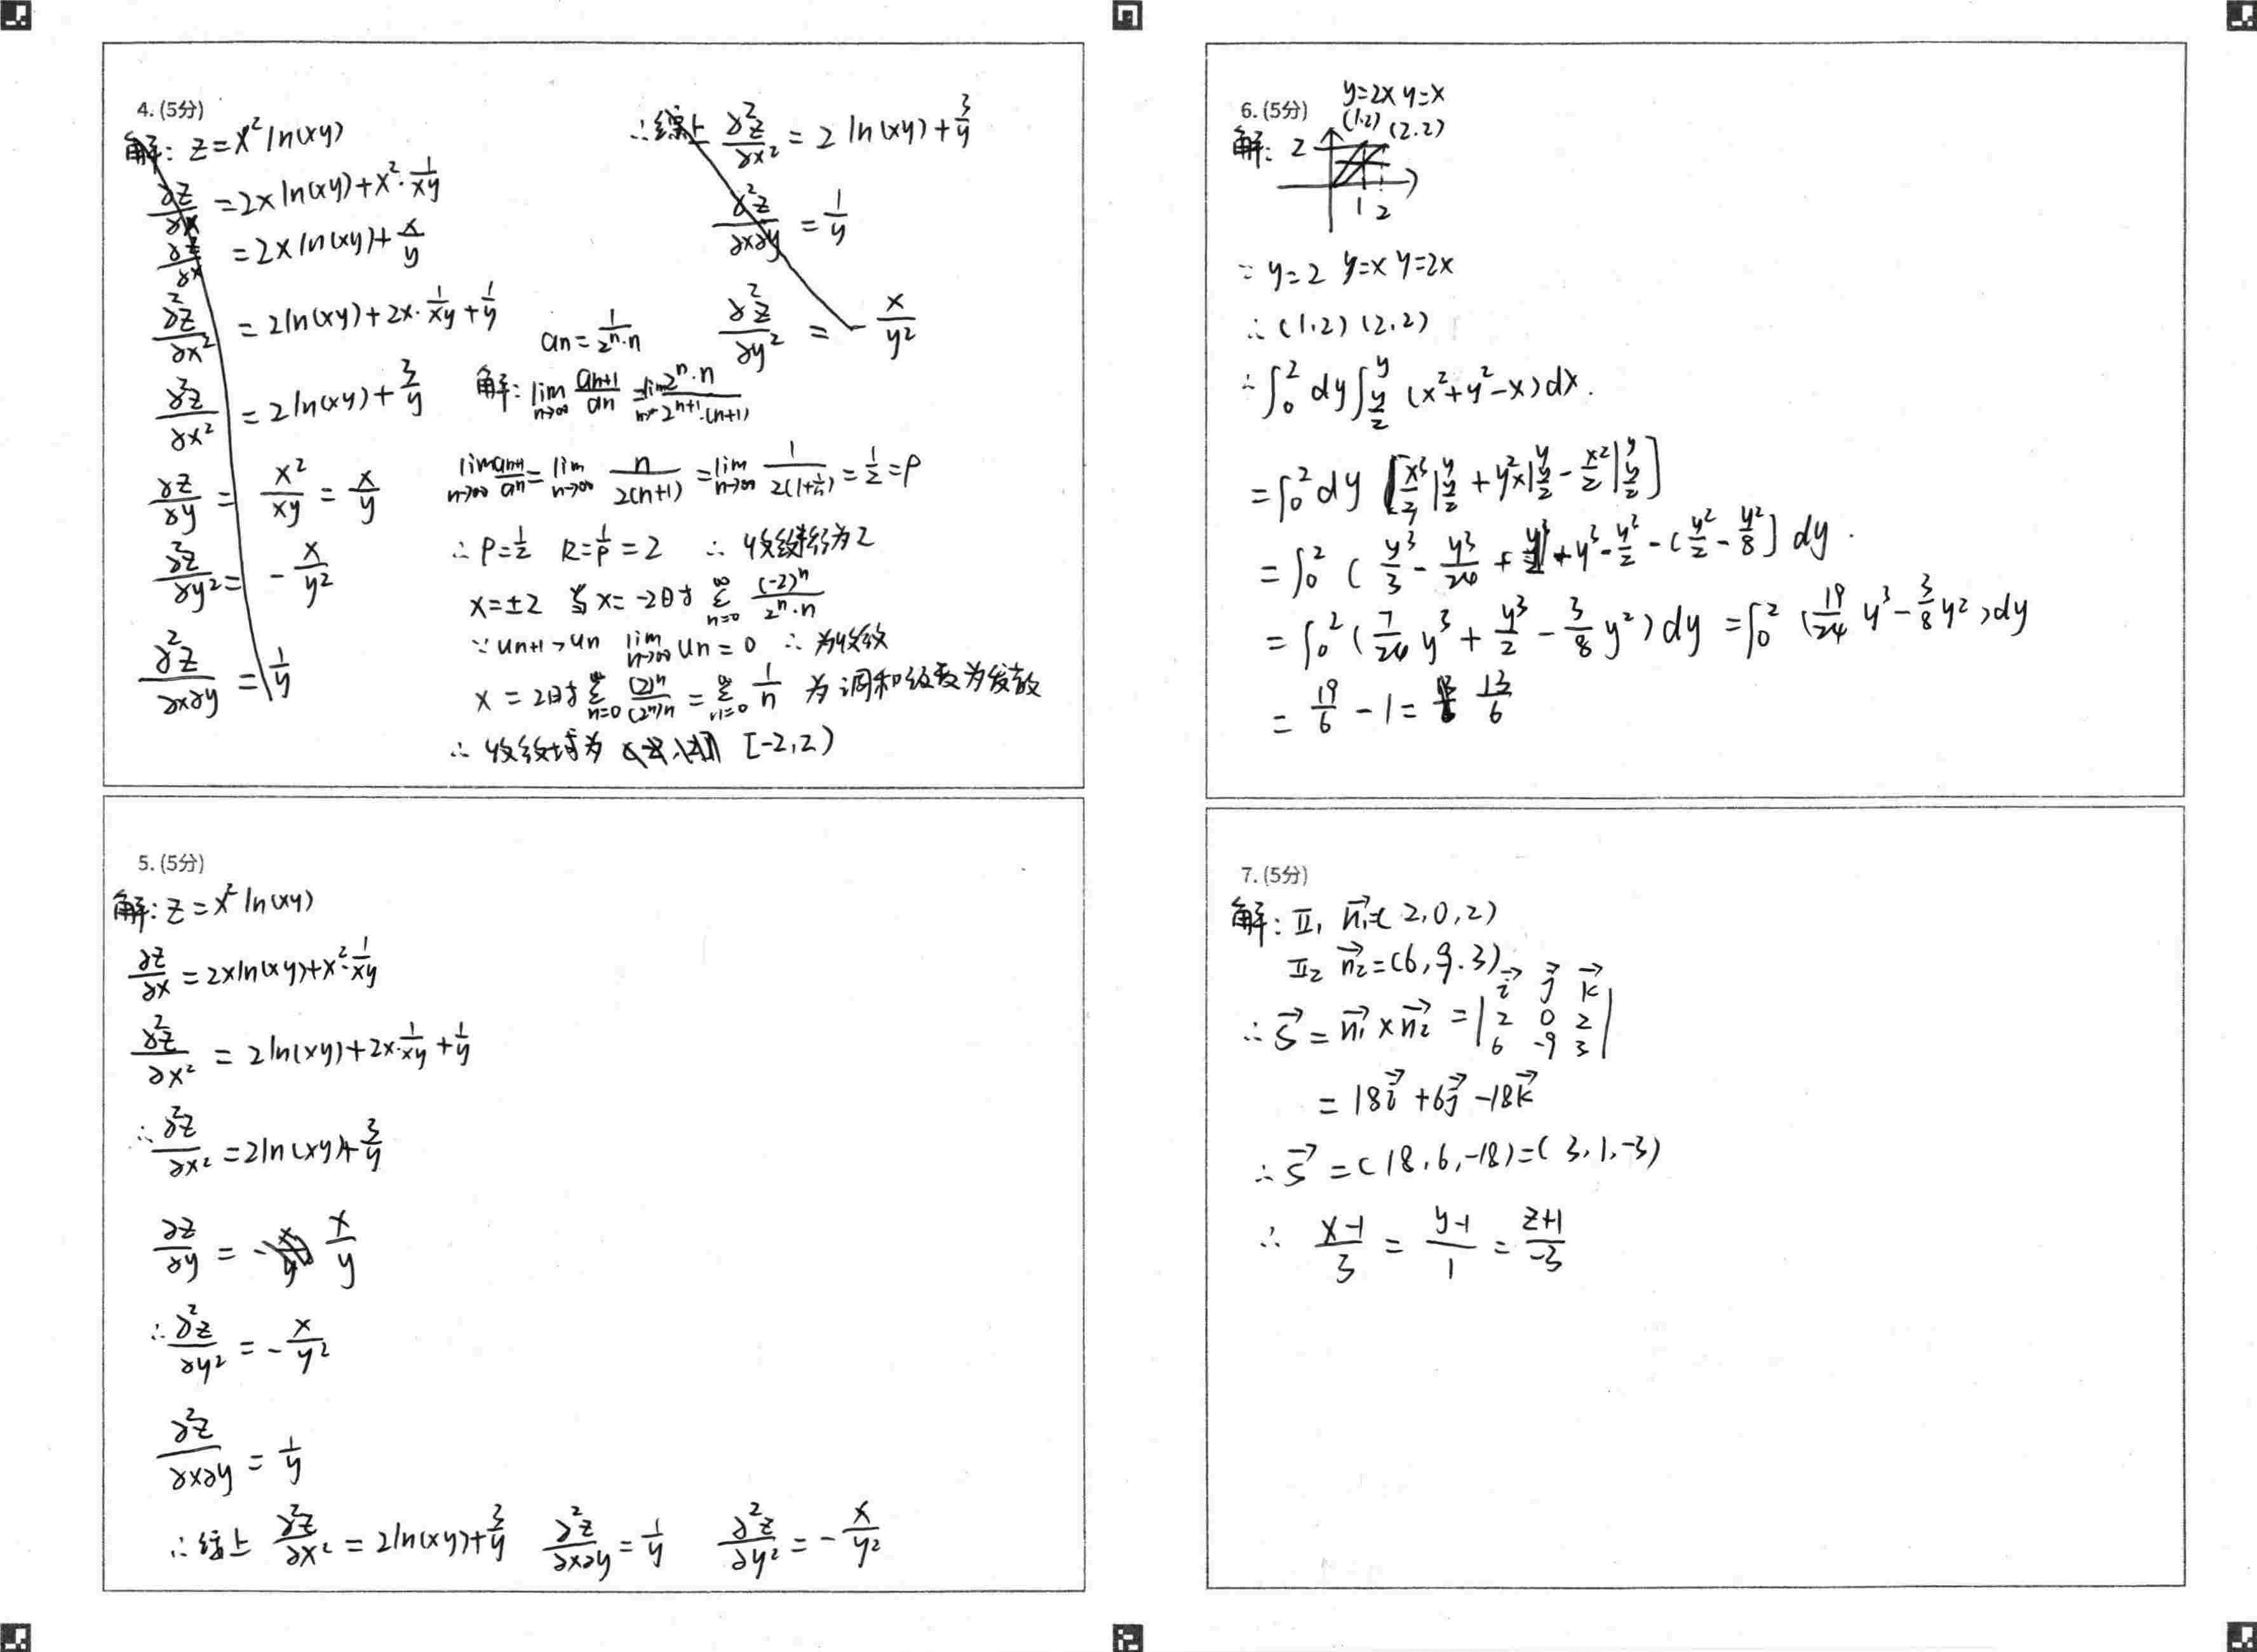 4. (5分)
解: z=x² ln(xy)
∂z/∂x = 2x ln(xy)+x²·1/xy
∂z/∂x = 2x ln(xy)+x/y
∂²z/∂x² = 2ln(xy)+2x·1/xy+1/y
∂²z/∂x² = 2ln(xy)+3/y
∂z/∂y = x²/xy = x/y
∂²z/∂y² = -x/y²
∂²z/∂x∂y = 1/y
∴综上 ∂²z/∂x² = 2 ln(xy)+3/y
∂²z/∂x∂y = 1/y
∂²z/∂y² = -x/y²
an = 1/2ⁿ·n
解: lim n→∞ an+1/an = lim n→∞ 2ⁿ·n/2ⁿ⁺¹·(n+1)
lim n→∞ an+1/an = lim n→∞ n/2(n+1) = lim n→∞ 1/2(1+1/n) = 1/2 = ρ
∴ρ=1/2 R=1/ρ=2 ∴收敛半径为2
x=±2 当x=-2时 ∞Σn=0 (-2)ⁿ/2ⁿ·n
∵un+1>un lim n→∞ un=0 ∴为收敛
x=2时 ∞Σn=0 (2)ⁿ/(2ⁿ)n = ∞Σn=0 1/n 为调和级数为发散
∴收敛域为 [-2,2)
5. (5分)
解: z=x² ln(xy)
∂z/∂x = 2xln(xy)+x²·1/xy
∂²z/∂x² = 2ln(xy)+2x·1/xy+1/y
∴∂²z/∂x² = 2ln(xy)+3/y
∂z/∂y = x/y
∴∂²z/∂y² = -x/y²
∂²z/∂x∂y = 1/y
∴综上 ∂²z/∂x² = 2ln(xy)+3/y ∂²z/∂x∂y = 1/y ∂²z/∂y² = -x/y²
6. (5分)
y=2x y=x
(1,2) (2.2)
解: 2
1 2
∵y=2 y=x y=2x
∴(1,2) (2,2)
∴∫₀² dy ∫_{y/2}^{y} (x²+y²-x)dx.
=∫₀² dy [x³/3|_{y/2}^{y} + y²x|_{y/2}^{y} - x²/2|_{y/2}^{y}]
=∫₀² ( y³/3 - y³/24 + y³ - y³/2 - (y²/2 - y²/8] dy.
=∫₀² (7/24 y³ + y³/2 - 3/8 y²)dy =∫₀² (19/24 y³ - 3/8 y²)dy
= 19/6 - 1 = 13/6
7. (5分)
解: Π₁ n₁⃗=(2,0,2)
Π₂ n₂⃗=(6,9.3)
∴s⃗ = n₁⃗×n₂⃗ = | i⃗ j⃗ k⃗
2 0 2
6 -9 3 |
= 18i⃗+6j⃗-18k⃗
∴s⃗ =(18,6,-18)=(3,1,-3)
∴ x-1/3 = y-1/1 = z+1/-3